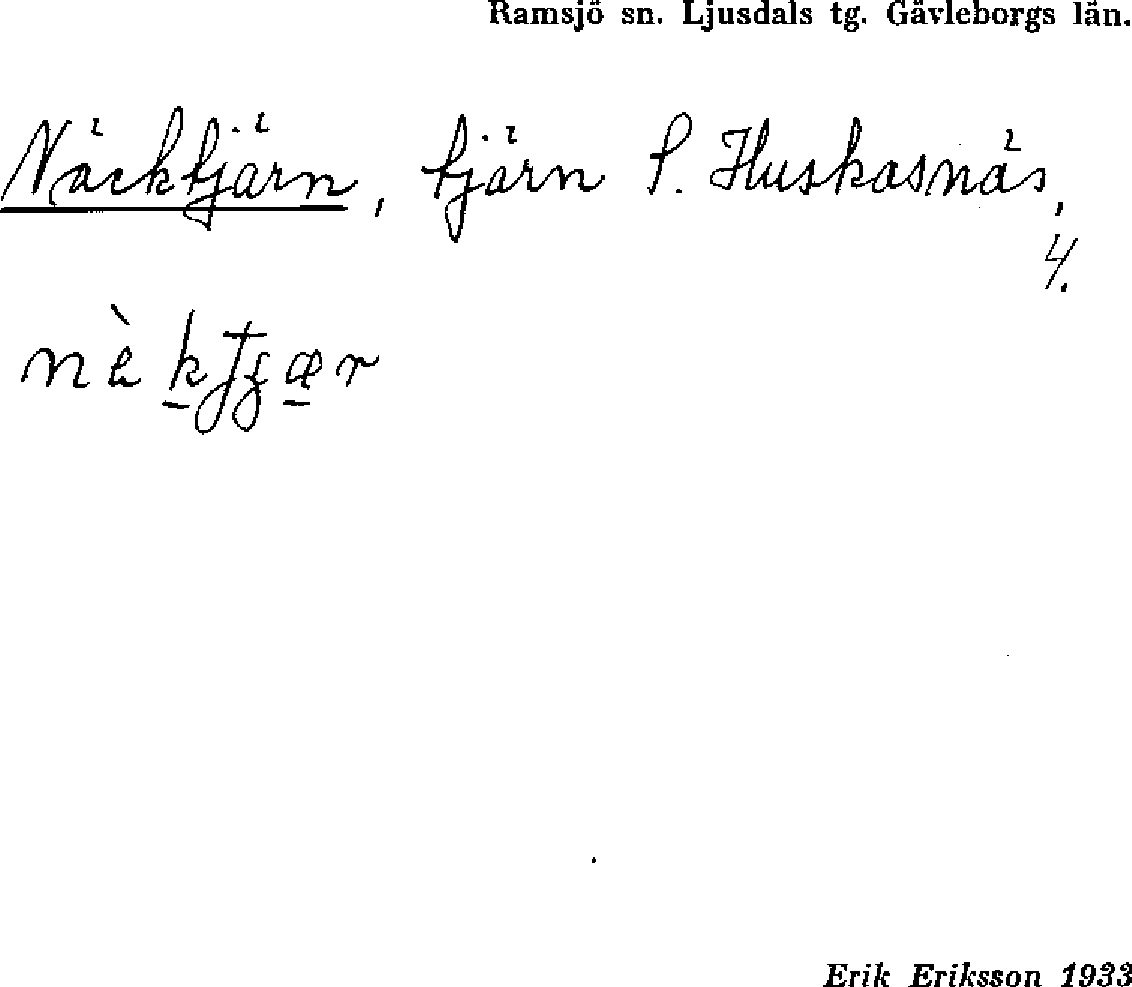 Ramsjö sn. Ljusdals tg. Gävleborgs län.
Näcktjärn, tjärn S. Huskasnäs,
4.
Erik Eriksson 1933